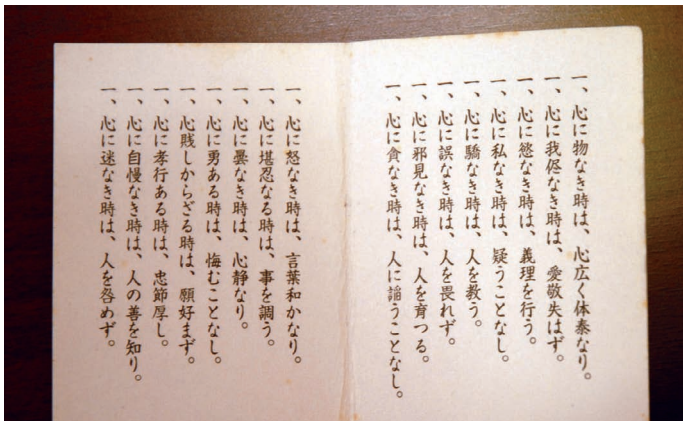 一、心に物なき時は、心広く体泰なり。
一、心に我侭なき時は、愛敬失はず。
一、心に慾なき時は、義理を行う。
一、心に私なき時は、疑うことなし。
一、心に驕なき時は、人を教う。
一、心に誤なき時は、人を畏れず。
一、心に邪見なき時は、人を育つる。
一、心に貪なき時は、人に諂うことなし。
一、心に怒なき時は、言葉和かなり。
一、心に堪忍なる時は、事を調う。
一、心に曇なき時は、心静なり。
一、心に勇ある時は、悔むことなし。
一、心賤しからざる時は、願好まず。
一、心に孝行ある時は、忠節厚し。
一、心に自慢なき時は、人の善を知り。
一、心に迷なき時は、人を咎めず。